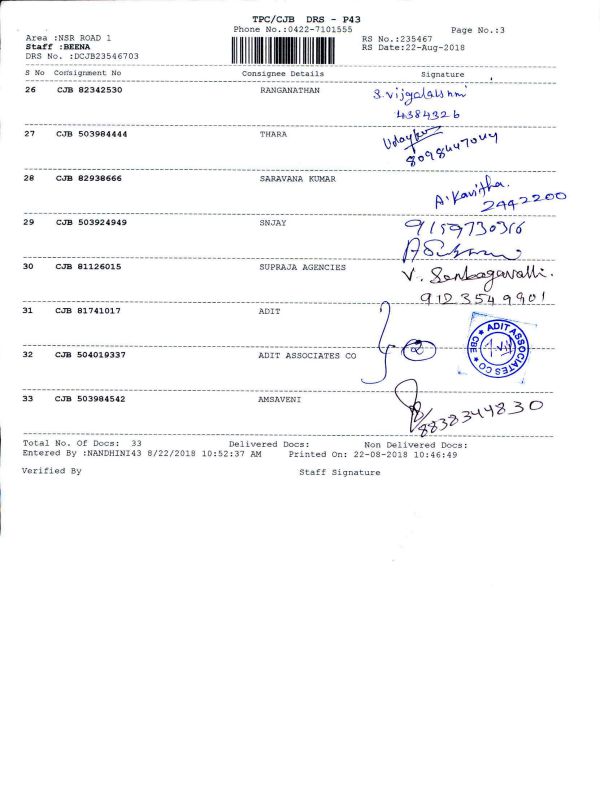 TPC/CJB DRS - P43
Phone No.:0422-7101555
Page No.:3
Area :NSR ROAD 1
RS No.:235467
Staff :BEENA
RS Date:22-Aug-2018
DRS No. :DCJB23546703
S No Consignment No Consignee Details Signature
26 CJB 82342530 RANGANATHAN S.vijayalakshmi
4384326
27 CJB 503984444 THARA
8098447044
28 CJB 82938666 SARAVANA KUMAR A.Kavitha.
2442200
29 CJB 503924949 SNJAY 9159730316
30 CJB 81126015 SUPRAJA AGENCIES V. Senbagavalli.
9123549901
31 CJB 81741017 ADIT
2
ADIT ASSOCIATES CO ★ CBE ★
32 CJB 504019337 ADIT ASSOCIATES CO
33 CJB 503984542 AMSAVENI
8838344830
Total No. Of Docs: 33 Delivered Docs: Non Delivered Docs:
Entered By :NANDHINI43 8/22/2018 10:52:37 AM Printed On: 22-08-2018 10:46:49
Verified By Staff Signature